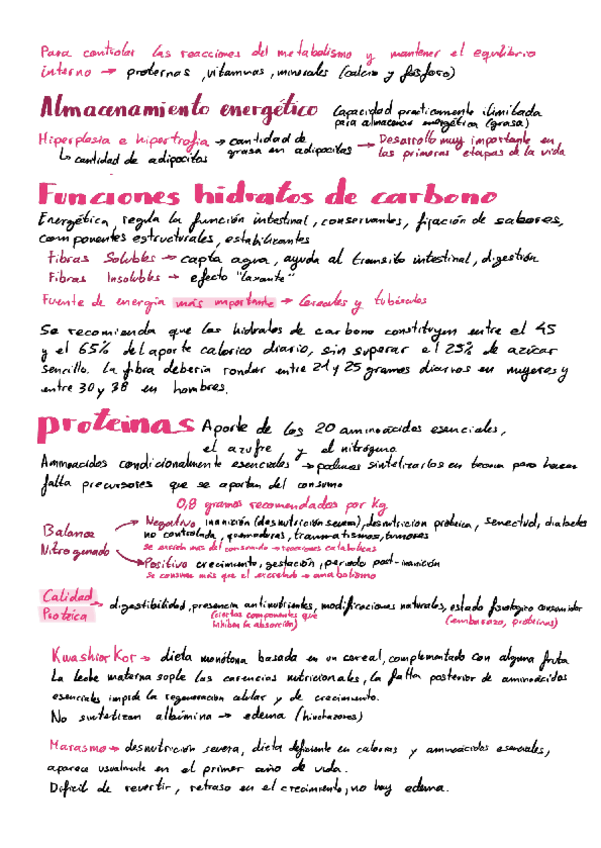 Para controlar las reacciones del metabolismo y mantener el equilibrio
interno → proteinas, vitaminas, minerales (calcio y fósforo)
Almacenamiento energético Capacidad practicamente ilimitada
para almacenar energética (grasa)
Hiperplasia e hipertrofia → cantidad de grasa en adipocitos → Desarrollo muy importante en las primeras etapas de la vida
↳ cantidad de adipocitos
Funciones hidratos de carbono
Energética, regula la función intestinal, conservantes, fijación de sabores,
componentes estructurales, estabilizantes
Fibras Solubles → capta agua, ayuda al transito intestinal, digestión
Fibras Insolubles → efecto "laxante"
Fuente de energia más importante → Cereales y tubérculos
Se recomienda que los hidratos de carbono constituyen entre el 45
y el 65% del aporte calorico diario, sin superar el 25% de azúcar
sencillo. La fibra deberia rondar entre 21 y 25 gramos diarios en mujeres y
entre 30 y 38 en hombres.
proteinas Aporte de los 20 aminoácidos esenciales,
el azufre y el nitrógeno
Aminoacidos condicionalmente esenciales → podemos sintetizarlos en teoria pero hacen
falta precursores que se aportan del consumo
0,8 gramos recomendados por kg
Balance Nitrogenado
→ Negativo inanición (desnutrición severa), desnutricion proteica, senectud, diabetes
no controlada, quemaduras, traumatismos, tumores
se excreta mas del consumido → reacciones catabolicas
→ Positivo crecimiento, gestación, periodo post-inanición
Se consume más que el excretado → anabolismo
Calidad Proteica → digestibilidad, presencia antinutrientes, modificaciones naturales, estado fisiologico consumidor
(ciertos componentes que inhiben la absorción) (embarazo, proteinas)
Kwashiorkor → dieta monótona basada en un cereal, complementado con alguna fruta
La leche materna suple las carencias nutricionales, la falta posterior de aminoácidos
esenciales impide la regeneración celular y de crecimiento.
No sintetizan albúmina → edema (hinchazones)
Marasmo → desnutrición severa, dieta deficiente en calorias y aminoacidos esenciales,
aparece usualmente en el primer año de vida.
Dificil de revertir, retraso en el crecimiento, no hay edema.